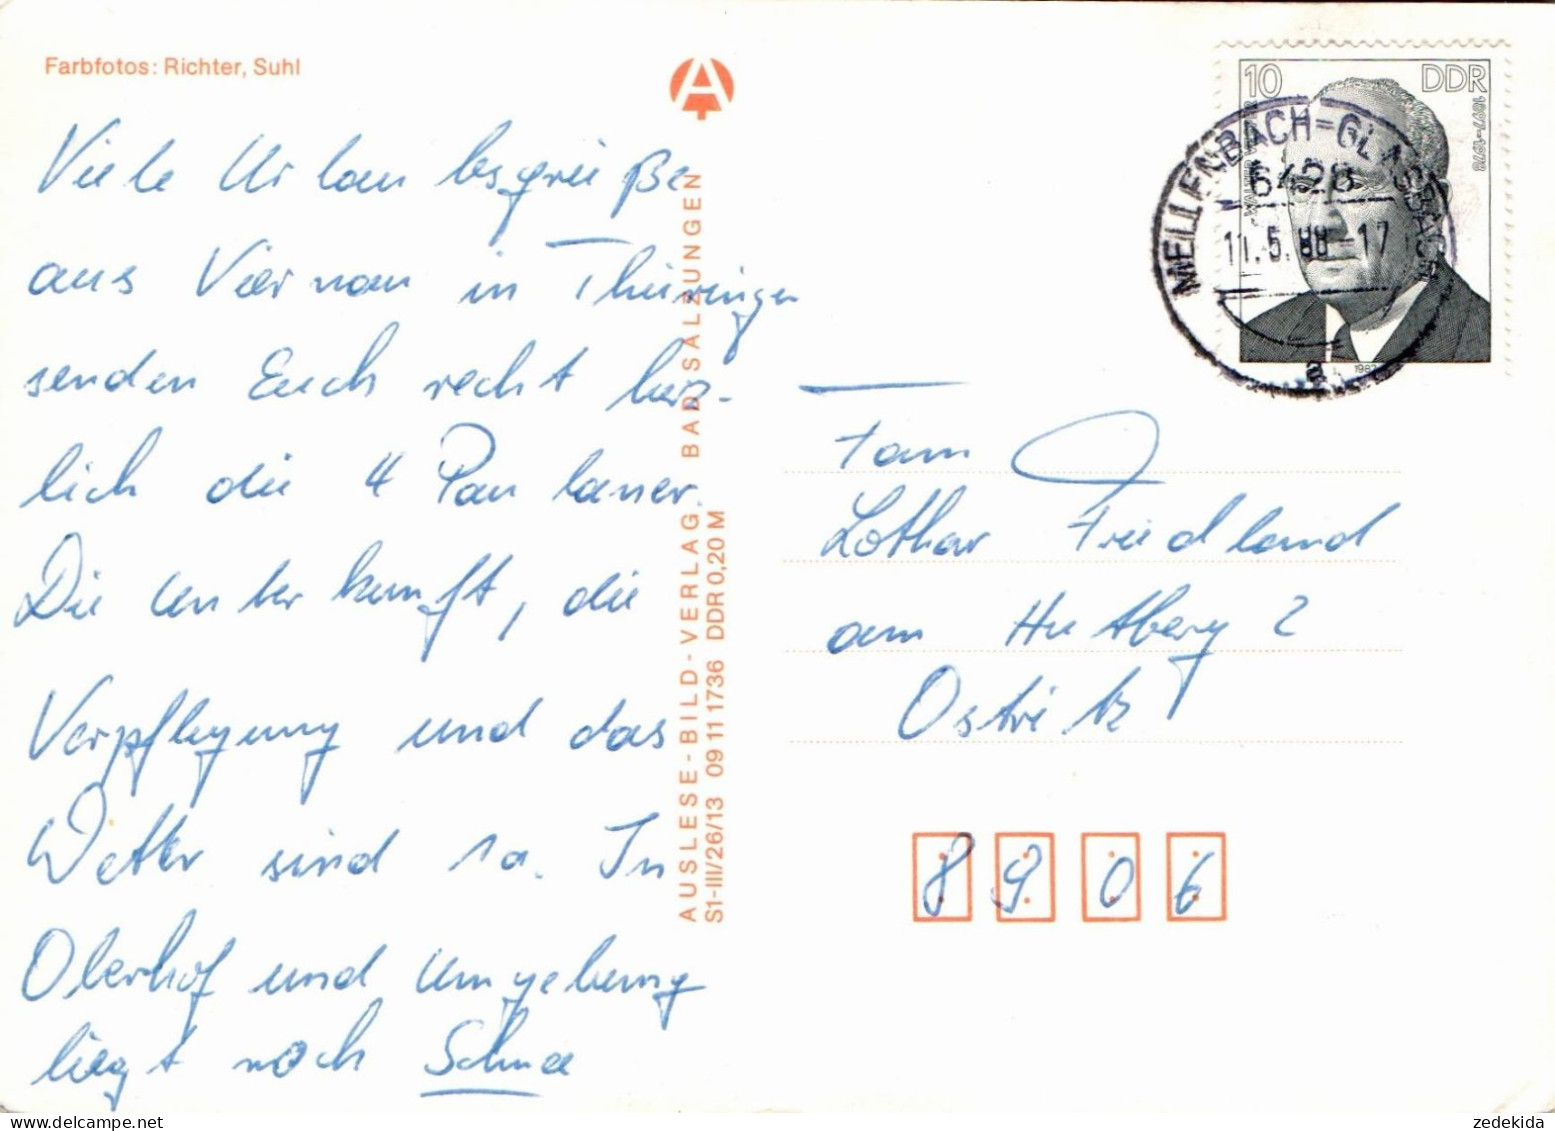 Farbfotos: Richter, Suhl
Viele Urlaubsgrüße
aus Viernau in Thüringen
senden Euch recht herz-
lich die 4 Panlaner.
Die Unterkunft, die
Verpflegung und das
Wetter sind 1a. In
Oberhof und Umgebung
liegt noch Schnee
AUSLESE-BILD-VERLAG BAD SALZUNGEN
S1-III/26/13 09 11 1736 DDR 0,20 M
10 DDR
1897-1978
1987
MELLENBACH-GLASBACH
6428
11.5.88-17
a
Fam
Lothar Friedland
am Hutberg 2
Ostritz
8906
zedekida